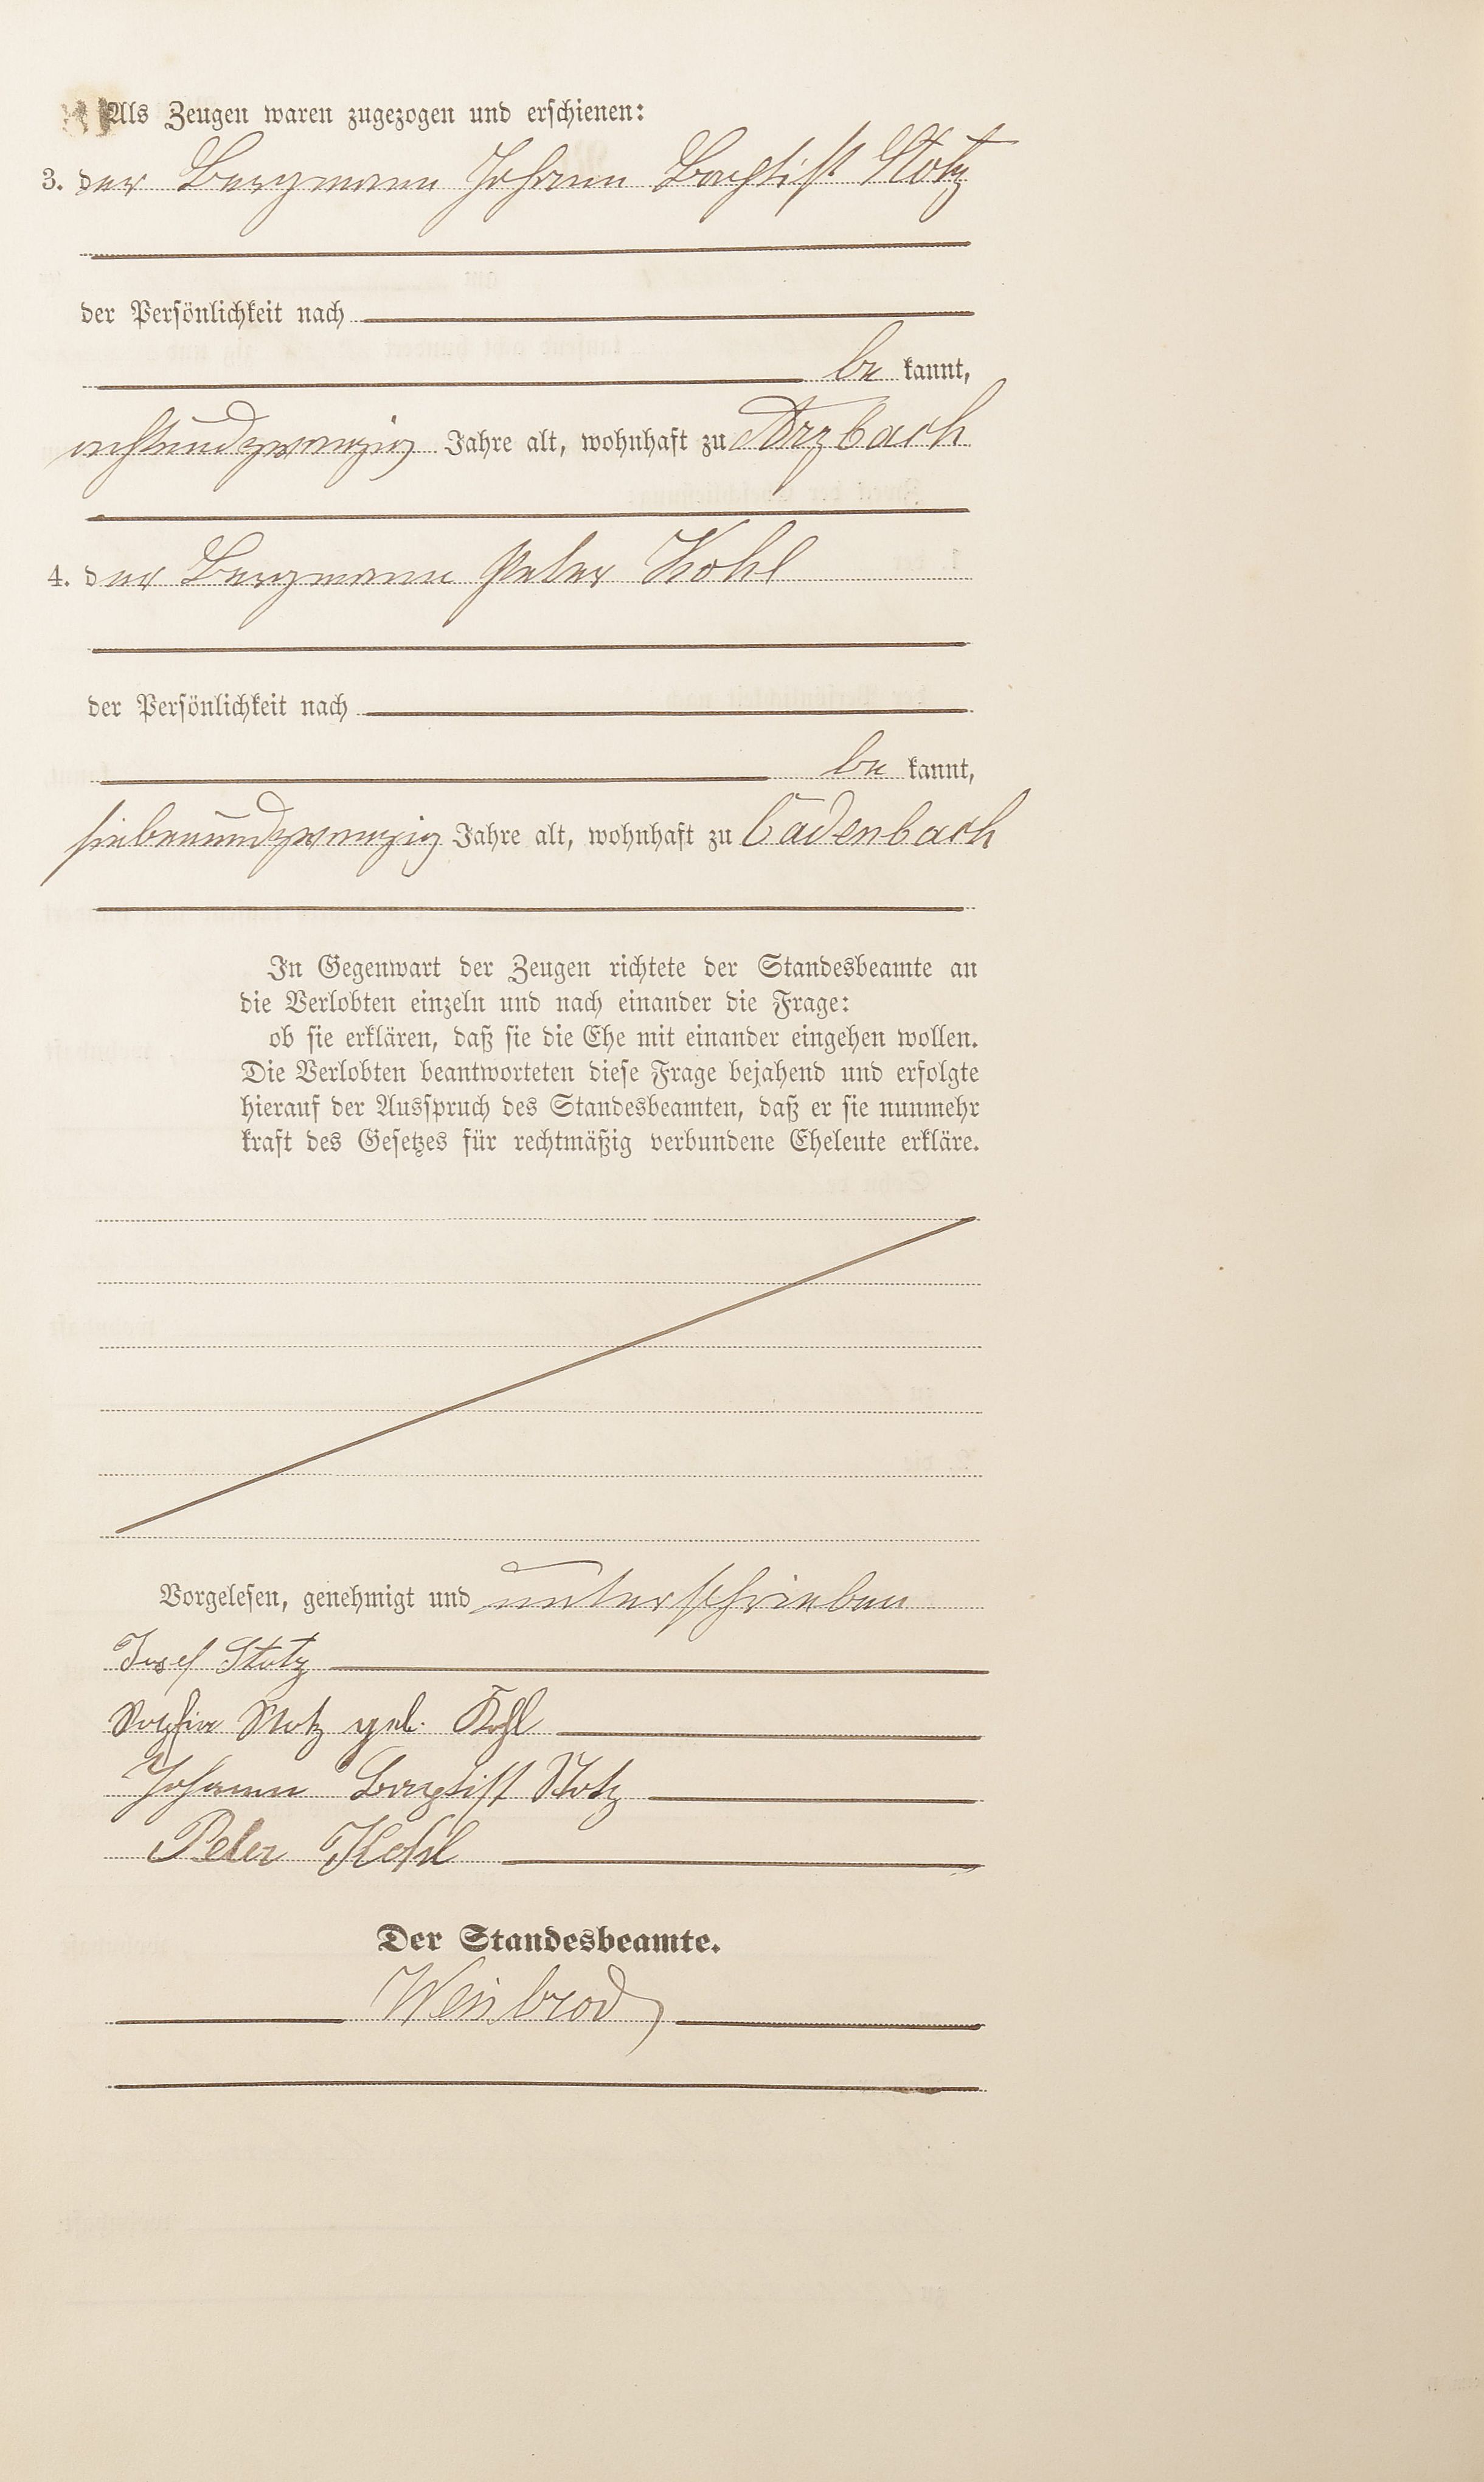 Als Zeugen waren zugezogen und erschienen:
3. der Bergmann Johann Baptist Stotz
der Persönlichkeit nach
be kannt,
achtundzwanzig Jahre alt, wohnhaft zu Arzbach
4. der Bergmann Peter Kohl
der Persönlichkeit nach
be kannt,
siebenundzwanzig Jahre alt, wohnhaft zu Cadenbach
In Gegenwart der Zeugen richtete der Standesbeamte an
die Verlobten einzeln und nach einander die Frage:
ob sie erklären, daß sie die Ehe mit einander eingehen wollen.
Die Verlobten beantworteten diese Frage bejahend und erfolgte
hierauf der Ausspruch des Standesbeamten, daß er sie nunmehr
kraft des Gesetzes für rechtmäßig verbundene Eheleute erkläre.
Vorgelesen, genehmigt und unterschrieben
Josef Stotz
Sophia Stotz geb. Kohl
Johann Baptist Stotz
Peter Kohl
Der Standesbeamte.
Weisbrod